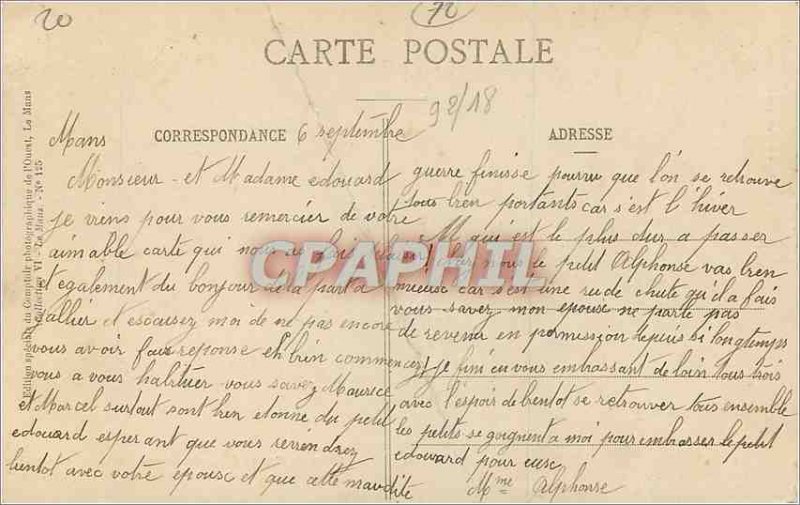 20
72
CARTE POSTALE
92/18
CORRESPONDANCE
ADRESSE
Edition spéciale du Comptoir photographique de l'Ouest, Le Mans
Collection VI - Le Mans. - No 125
Mans 6 septembre
Monsieur et Madame edouard
je viens pour vous remercier de votre
aimable carte qui nous
et également du bonjour de la part a
allier et escuisez moi de ne pas encore
vous avoir fais reponse eh bien commencez
vous a vous habituer vous savez Maurice
et Marcel surtout sont bien etonne du petit
edouard esperant que vous reviendrez
bientot avec votre epouse et que cette maudite
guerre finisse pourvu que l'on se retrouve
tous bien portants car s'est l'hiver
qui est le plus dur a passer
chez nous le petit Alphonse vas bien
mieuse car s'est une rude chute qu'il a fais
vous savez mon epouse ne parle pas
de revenir en permission depuis si longtemps
je fini en vous embrassant de loin tous trois
avec l'espoir de bentot se retrouver tous ensemble
les petits se goignent a moi pour embrasser le petit
edouard pour eux
Mme Alphonse
CPAPHIL